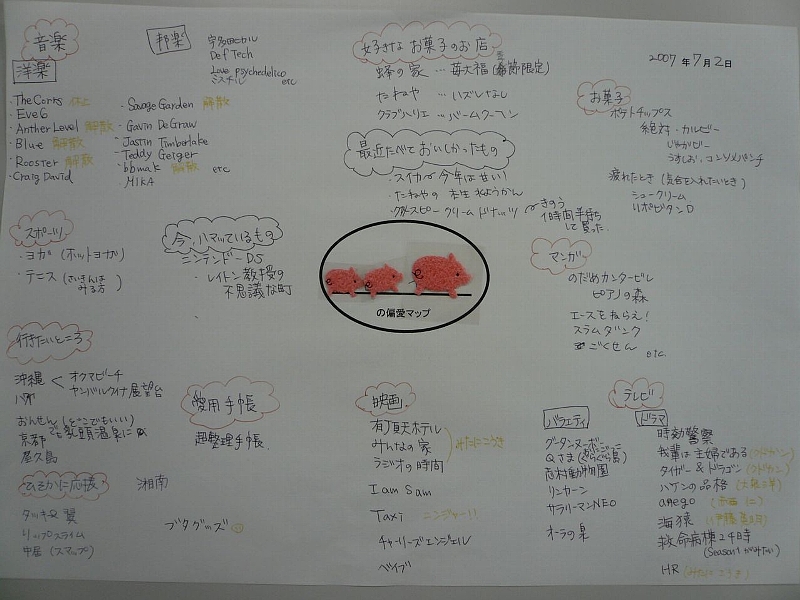 音楽
洋楽
・The Corrs 休止
・Eve6
・Anther Level 解散
・Blue 解散
・Rooster 解散
・Craig David
・Savage Garden 解散
・Gavin DeGraw
・Jastin Timberlake
・Teddy Geiger
・bbmak 解散 etc
・MIKA
邦楽
宇多田ヒカル
Def Tech
Love psychedelico
ミスチル etc
好きな お菓子のお店
蜂の家 … 苺大福(季節限定)
たねや … ハズレなし
クラブハリエ … バームクーヘン
2007年7月2日
お菓子
ポテトチップス
絶対・カルビー
じゃがビー
うすしお、コンソメパンチ
疲れたとき(気合を入れたいとき)
シュークリーム
リポビタンD
最近たべておいしかったもの
・スイカ 今年は甘い!
・たねやの 本生 水ようかん
クリスピー クリーム ドーナッツ
きのう
1時間半待ち
して買った
スポーツ
・ヨガ(ホットヨガ)
・テニス(さいきんは
みる方)
今、ハマッているもの
ニンテンドーDS
・レイトン教授の
不思議な町
の偏愛マップ
マンガ
のだめカンタービレ
ピアノの森
エースをねらえ!
スラムダンク
ごくせん
etc.
行きたいところ
沖縄 < オクマビーチ
ヤンバルクイナ展望台
おんせん(どこでもいい)
でも乳頭温泉に
京都
屋久島
愛用手帳
超整理手帳
映画
有頂天ホテル
みんなの家
ラジオの時間
みたにこうき
I am Sam
Taxi
チャーリーズエンジェル
ベイブ
テレビ
バラエティ
グータンヌーボ
Qさま
志村動物園
リンカーン
サラリーマンNEO
オーラの泉
ドラマ
時効警察
我輩は主婦である(クドカン)
タイガー&ドラゴン(クドカン)
ハケンの品格
anego
海猿(伊藤英明)
救命病棟24時
(Season1がみたい)
HR(みたにこうき)
ひそかに応援
タッキー&翼
リップスライム
中居(スマップ)
湘南
ブタグッズ